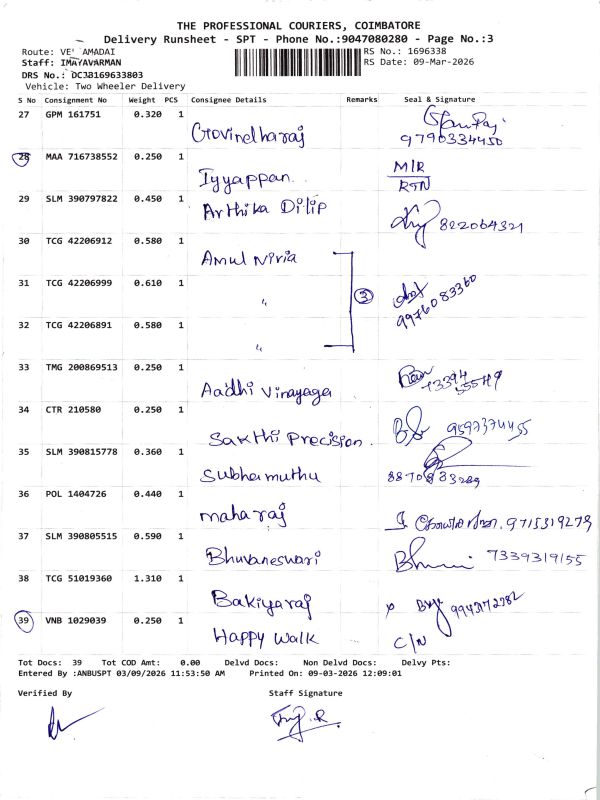 THE PROFESSIONAL COURIERS, COIMBATORE
Delivery Runsheet - SPT - Phone No.:9047080280 - Page No.:3
Route: VE AMADAI
RS No.: 1696338
Staff: IMAYAVARMAN
RS Date: 09-Mar-2026
DRS No.: DCJB169633803
Vehicle: Two Wheeler Delivery
S No Consignment No Weight PCS Consignee Details Remarks Seal & Signature
27 GPM 161751 0.320 1 Govindharaj 9790334450
28 MAA 716738552 0.250 1 Iyyappan. M/R RTN
29 SLM 390797822 0.450 1 Arthika Dilip 822064321
30 TCG 42206912 0.580 1 Amul Niria
31 TCG 42206999 0.610 1 " 3 9976083360
32 TCG 42206891 0.580 1 "
33 TMG 200869513 0.250 1 Aadhi Vinayaga
34 CTR 210580 0.250 1 Sakthi Precision. 9597374455
35 SLM 390815778 0.360 1 Subhamuthu 8870833289
36 POL 1404726 0.440 1 maharaj 9715319279
37 SLM 390805515 0.590 1 Bhuvaneswari 7339319155
38 TCG 51019360 1.310 1 Bakiyaraj
39 VNB 1029039 0.250 1 Happy Walk C/N
Tot Docs: 39 Tot COD Amt: 0.00 Delvd Docs: Non Delvd Docs: Delvy Pts:
Entered By :ANBUSPT 03/09/2026 11:53:50 AM Printed On: 09-03-2026 12:09:01
Verified By Staff Signature